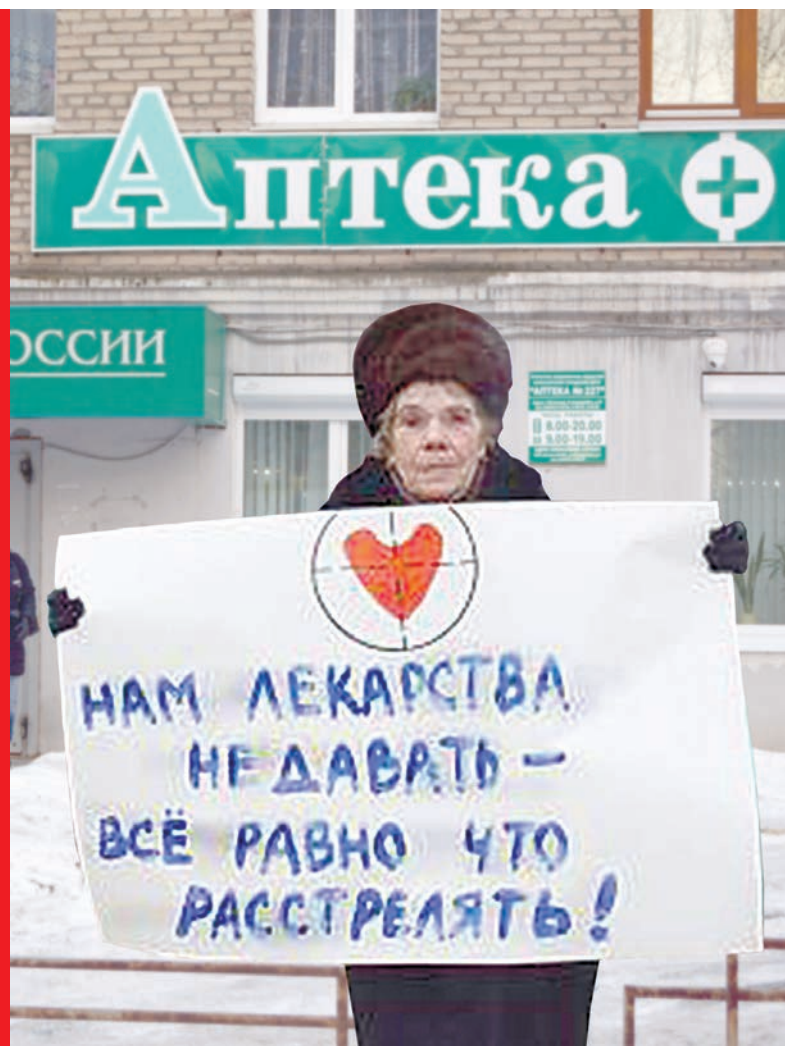 Аптека
ОССИИ
"АПТЕКА № 227"
8.00-20.00
9.00-19.00
НАМ ЛЕКАРСТВА
НЕ ДАВАТЬ –
ВСЁ РАВНО ЧТО
РАССТРЕЛЯТЬ!